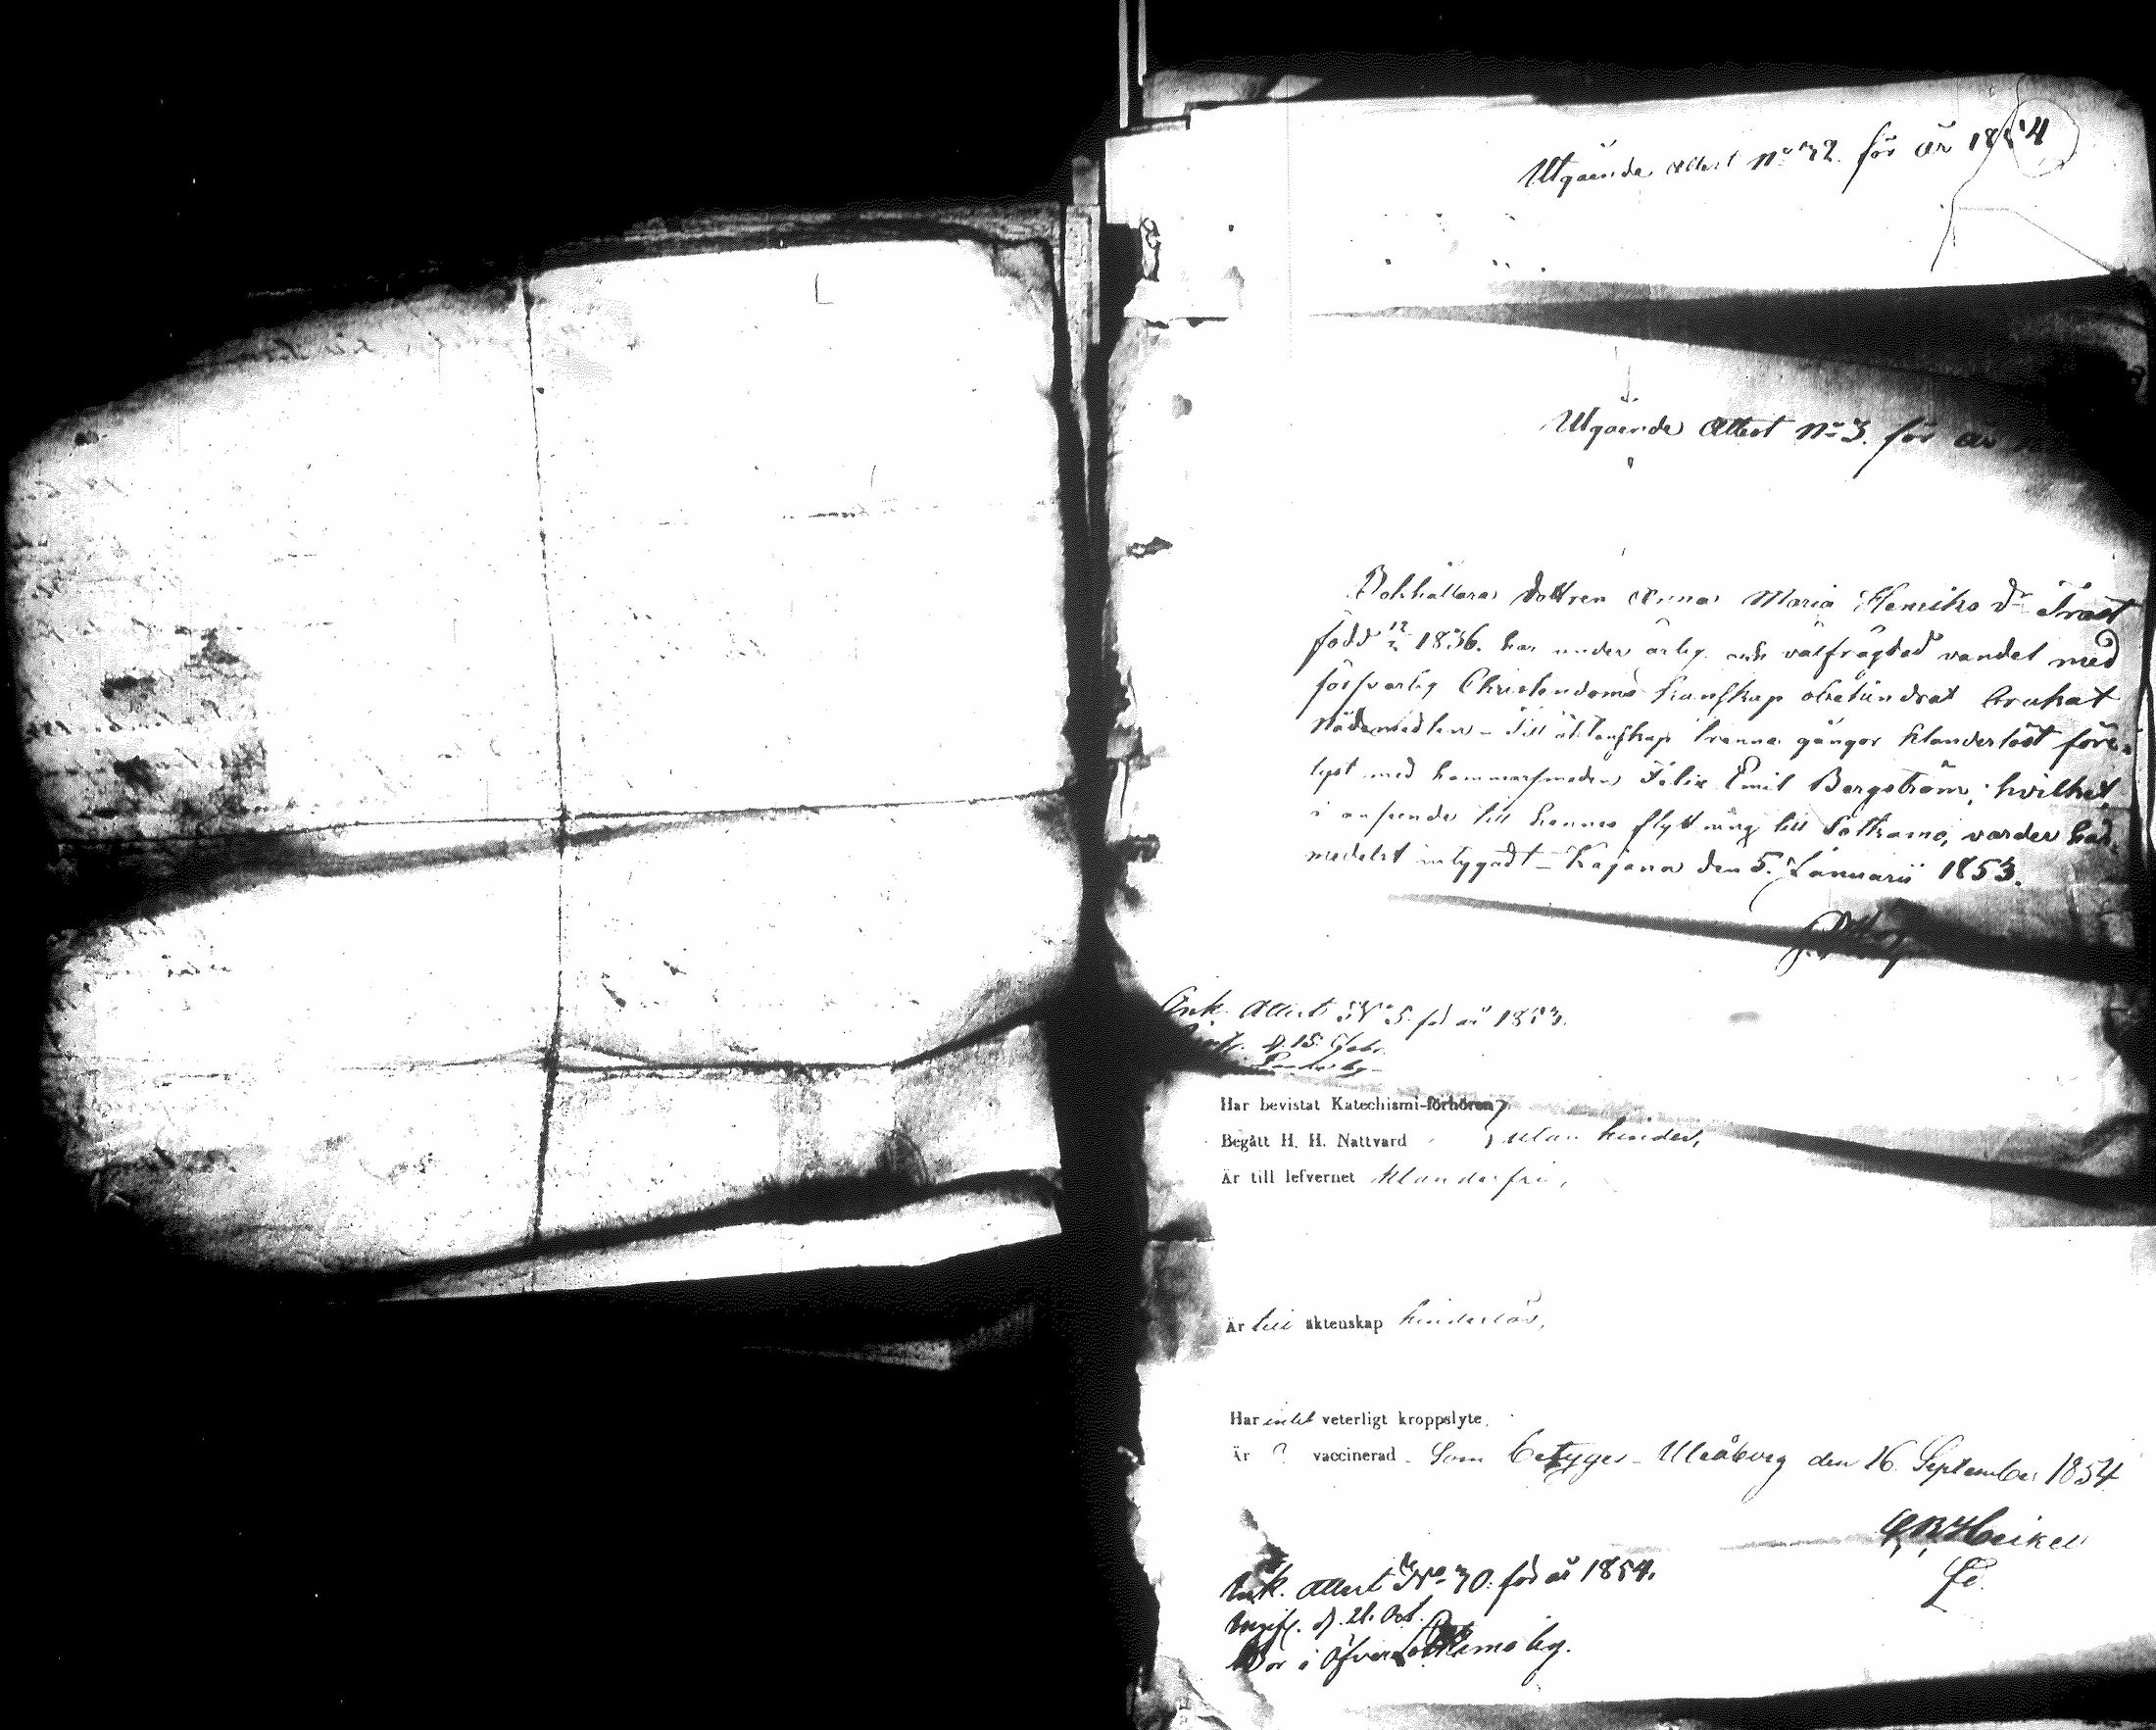 Utgående Attest No 32. för år 1854
Utgående Attest No 3. för år
Bokhållare dottren Anna Maria Henriks dr Trast
född 12/2 1836. har under ärlig och välfrägdad vandel med
försvarlig Christendoms kunskap obehindrat brukat
Nådemedlen - Till äktenskap trenne gångor klanderlöst före-
lyst med hammarsmeden Felix Emil Bergström; hvilket
i anseende till hennes flyttning till Sotkamo, varder här-
medelst intygadt - Kajana den 5. Januarii 1853.
Ank. Attest No 5. för år 1853.
d. 15. Febr.
Har bevistat Katechismi-förhören
Begått H. H. Nattvard } utan hinder,
Är till lefvernet klanderfri,
Är till äktenskap hinderlös,
Har intet veterligt kroppslyte.
Är ? vaccinerad. Som betyges - Uleåborg den 16. September 1854
Heikel
Ank. Attest No 30. för år 1854.
Ingift. d. 21. Oct.
Bor i Öfversotkamo by.